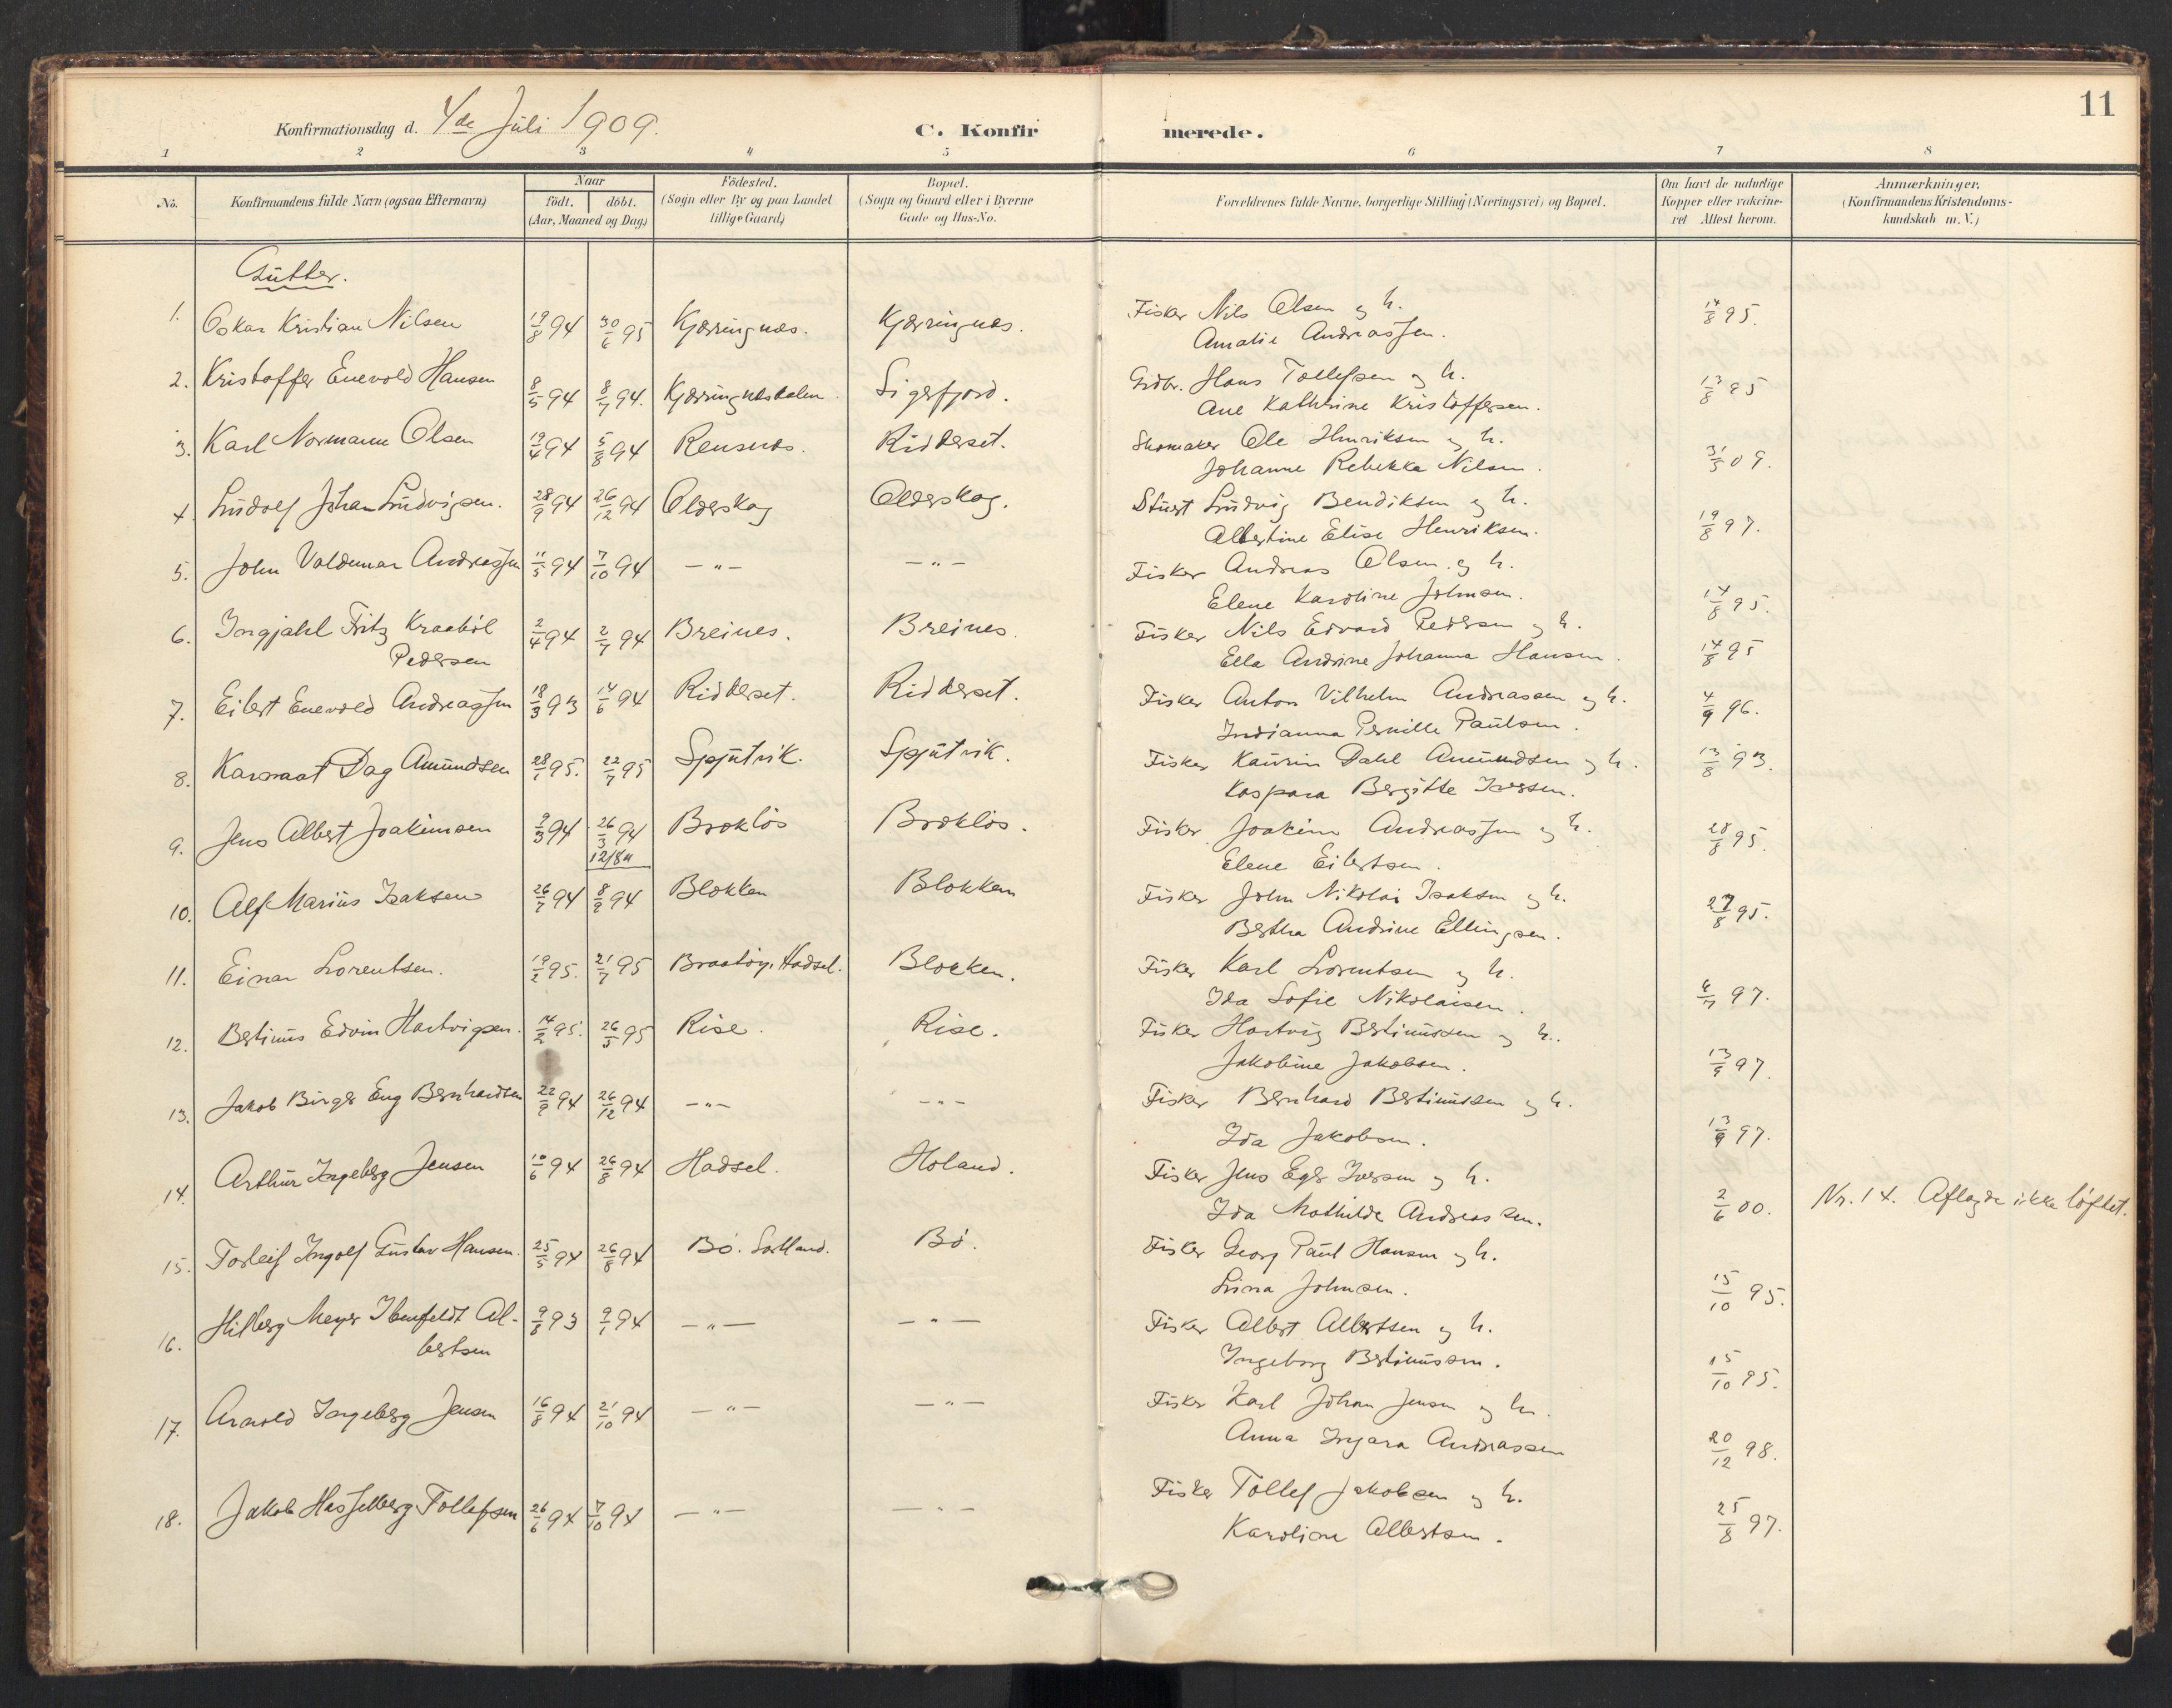 11
Konfirmationsdag d. 4de Juli 1909.
C. Konfirmerede.
1 2 3 4 5 6 7 8
No.
Konfirmandens fulde Navn (ogsaa Efternavn)
Naar
födt. döbt.
(Aar, Maaned og Dag)
Födested.
(Sogn eller By og paa Landet
tillige Gaard)
Bopæl.
(Sogn og Gaard eller i Byerne
Gade og Hus-No.
Forældrenes fulde Navne, borgerlige Stilling (Næringsvei) og Bopæl.
Om havt de naturlige
Kopper eller vakcine-
ret Attest herom.
Anmærkninger.
(Konfirmandens Kristendoms-
kundskab m. V.)
Gutter.
1. Oskar Kristian Nilsen 19/8 94 30/6 95 Kjærringnes. Kjærringnes. Fisker Nils Olsen og h. 14/8 95.
Amalie Andreassen.
2. Kristoffer Enevold Hansen 8/5 94 8/7 94. Kjærringnesdalen. Sigerfjord. Grdbr. Hans Tollefsen og h. 13/8 95
Ane Kathrine Kristoffersen.
3. Karl Normann Olsen 19/4 94 5/8 94 Rensnes. Ridderset. Skomaker Ole Henriksen og h. 31/5 09.
Johanne Rebekka Nilsen.
4. Ludolf Johan Ludvigsen. 28/9 94 26/12 94 Olderskog Olderskog. Stuert Ludvig Bendiksen og h. 19/8 97.
Albertine Elise Henriksen.
5. John Valdemar Andreassen 11/5 94 7/10 94 — " — — " — Fisker Andreas Olsen og h. 14/8 95.
Elene Karoline Johnsen.
6. Ingjahl Fritz Kraaböl 2/4 94 2/7 94 Breines. Breines. Fisker Nils Edvard Pedersen og h. 14/8 95
Pedersen Ella Andrine Johanna Hansen.
7. Eilert Enevold Andreassen 18/3 93 14/6 94 Ridderset. Ridderset. Fisker Anton Vilhelm Andreassen og h. 4/9 96.
Indianna Pernille Paulsen.
8. Karmaat Dag Amundsen 28/1 95. 22/7 95 Spjutvik. Spjutvik. Fisker Kaurin Dahl Amundsen og h. 13/8 93.
Kaspara Bergitte Iversen.
9. Jens Albert Joakimsen 9/3 94 26/3 94 Broklös Broklös. Fisker Joakim Andreassen og h. 28/8 95.
12/8 Elene Eilertsen.
10. Alf Marius Isaksen 26/7 94 8/2 94 Blokken Blokken Fisker John Nikolai Isaksen og h. 27/8 95.
Bertha Andrine Ellingsen.
11. Einar Lorentsen. 19/2 95. 21/7 95 Braatöy, Hadsel. Blokken. Fisker Karl Lorentsen og h. 6/7 97.
Ida Sofie Nikolaisen.
12. Bertinus Edvin Hartvigsen. 14/2 95. 26/5 95 Rise. Rise. Fisker Hartvig Bertinussen og h. 13/9 97.
Jakobine Jakobsen.
13. Jakob Birger Eng Bernhardsen 22/9 94 26/12 94 — " — — " — Fisker Bernhard Bertinussen og h. 13/9 97.
Ida Jakobsen.
14. Arthur Ingeberg Jensen 10/6 94 26/8 94 Hadsel. Holand. Fisker Jens Eger Iversen og h. 2/6 00. Nr. 14. Aflagde ikke löftet.
Ida Mathilde Andreassen.
15. Torleif Ingolf Gustav Hansen. 25/5 94 26/8 94 Bö. Sortland. Bö. Fisker Georg Paul Hansen og h. 15/10 95.
Lina Johnsen.
16. Hilberg Meyer Ibenfeldt Al- 9/8 93 9/1 94 — " — — " — Fisker Albert Albertsen og h. 15/10 95.
bertsen Ingeborg Bertinussen.
17. Arnold Ingeberg Jensen 16/8 94 21/10 94 — " — — " — Fisker Karl Johan Jensen og h. 20/12 98.
Anna Ingara Andreassen
18. Jakob Hasselberg Tollefsen 26/6 94 7/10 94 — " — — " — Fisker Tollef Jakobsen og h. 25/8 97.
Karoline Albertsen.